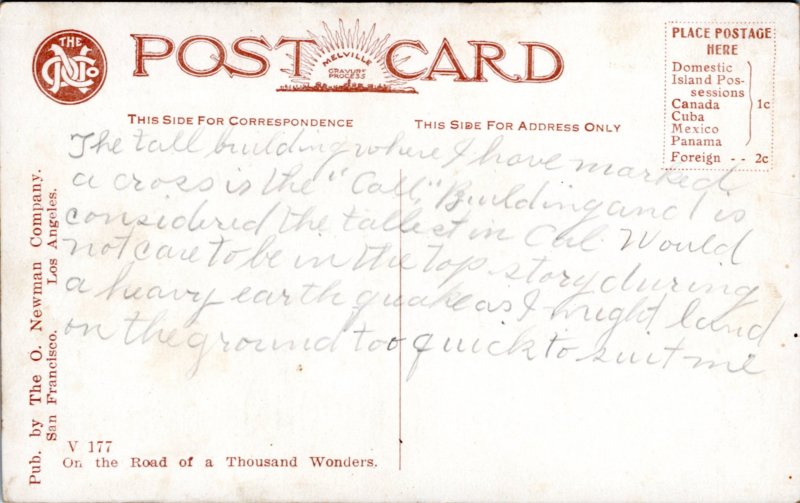 THE
ONCo
POST CARD
MELVILLE
GRAVURE
PROCESS
PLACE POSTAGE
HERE
Domestic
Island Pos-
sessions
Canada
Cuba
Mexico
Panama
1c
Foreign -- 2c
THIS SIDE FOR CORRESPONDENCE
THIS SIDE FOR ADDRESS ONLY
The tall building where I have marked
a cross is the "Call," Building and is
considered the tallest in Cal. Would
not care to be in the top story during
a heavy earth quake as I might land
on the ground too quick to suit me
Pub. by The O. Newman Company.
San Francisco. Los Angeles.
V 177
On the Road of a Thousand Wonders.